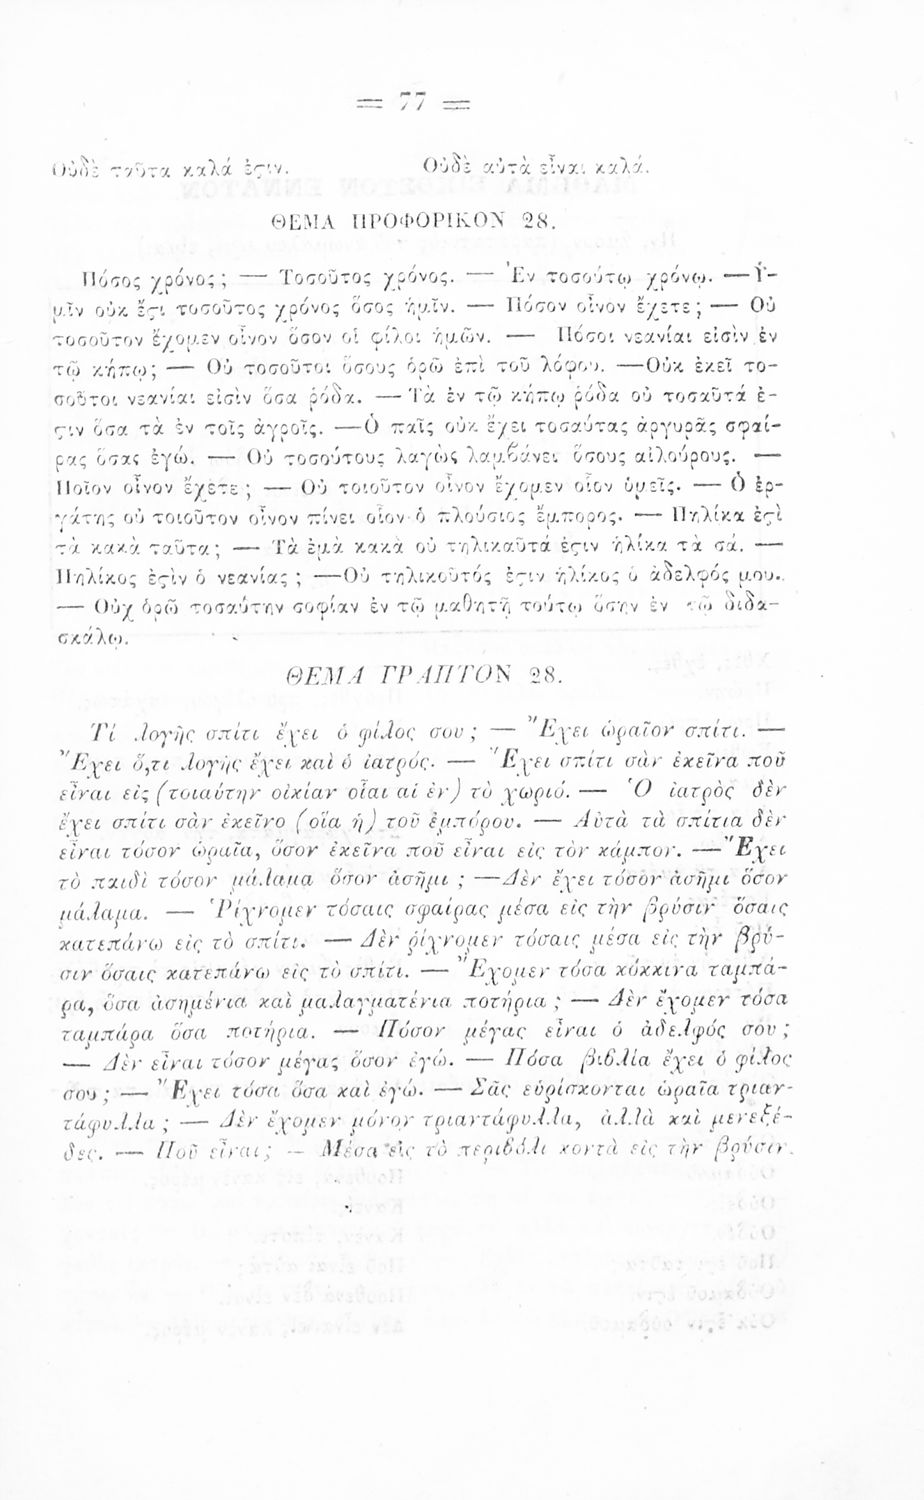 = 77 =
Οὐδὲ ταῦτα καλά ἐϛιν. Οὐδὲ αὐτὰ εἶναι καλά.
ΘΕΜΑ ΠΡΟΦΟΡΙΚΟΝ 28.
Πόσος χρόνος; — Τοσοῦτος χρόνος. — Ἐν τοσούτῳ χρόνῳ. — Ὑ-
μῖν οὐκ ἔϛι τοσοῦτος χρόνος ὅσος ἡμῖν. — Πόσον οἶνον ἔχετε; — Οὐ
τοσοῦτον ἔχομεν οἶνον ὅσον οἱ φίλοι ἡμῶν. — Πόσοι νεανίαι εἰσὶν ἐν
τῷ κήπῳ; — Οὐ τοσοῦτοι ὅσους ὁρῶ ἐπὶ τοῦ λόφου. —Οὐκ ἐκεῖ το-
σοῦτοι νεανίαι εἰσὶν ὅσα ῥόδα. — Τὰ ἐν τῷ κήπῳ ῥόδα οὐ τοσαῦτά ἐ-
ϛιν ὅσα τὰ ἐν τοῖς ἀγροῖς. —Ὁ παῖς οὐκ ἔχει τοσαύτας ἀργυρᾶς σφαί-
ρας ὅσας ἐγώ. — Οὐ τοσούτους λαγὼς λαμβάνει ὅσους αἰλούρους. —
Ποῖον οἶνον ἔχετε; — Οὐ τοιοῦτον οἶνον ἔχομεν οἷον ὑμεῖς. — Ὁ ἐρ-
γάτης οὐ τοιοῦτον οἶνον πίνει οἷον ὁ πλούσιος ἔμπορος. — Πηλίκα ἐϛὶ
τὰ κακὰ ταῦτα; — Τὰ ἐμὰ κακὰ οὐ τηλικαῦτά ἐϛιν ἡλίκα τὰ σά. —
Πηλίκος ἐϛὶν ὁ νεανίας; —Οὐ τηλικοῦτός ἐϛιν ἡλίκος ὁ ἀδελφός μου.
— Οὐχ ὁρῶ τοσαύτην σοφίαν ἐν τῷ μαθητῇ τούτῳ ὅσην ἐν τῷ διδα-
σκάλῳ.
ΘΕΜΑ ΓΡΑΠΤΟΝ 28.
Τί λογῆς σπίτι ἔχει ὁ φίλος σου; — Ἔχει ὡραῖον σπίτι. —
Ἔχει ὅ,τι λογῆς ἔχει καὶ ὁ ἰατρός. — Ἔχει σπίτι σὰν ἐκεῖνα ποῦ
εἶναι εἰς (τοιαύτην οἰκίαν οἷαι αἱ ἐν) τὸ χωριό. — Ὁ ἰατρὸς δὲν
ἔχει σπίτι σὰν ἐκεῖνο (οἵα ἡ) τοῦ ἐμπόρου. — Αὐτὰ τὰ σπίτια δὲν
εἶναι τόσον ὡραῖα, ὅσον ἐκεῖνα ποῦ εἶναι εἰς τὸν κάμπον. —Ἔχει
τὸ παιδὶ τόσον μάλαμα ὅσον ἀσῆμι; —Δὲν ἔχει τόσον ἀσῆμι ὅσον
μάλαμα. — Ῥίχνομεν τόσαις σφαίρας μέσα εἰς τὴν βρύσιν ὅσαις
κατεπάνω εἰς τὸ σπίτι. — Δὲν ῥίχνομεν τόσαις μέσα εἰς τὴν βρύ-
σιν ὅσαις κατεπάνω εἰς τὸ σπίτι. — Ἔχομεν τόσα κόκκινα ταμπά-
ρα, ὅσα ἀσημένια καὶ μαλαγματένια ποτήρια; — Δὲν ἔχομεν τόσα
ταμπάρα ὅσα ποτήρια. — Πόσον μέγας εἶναι ὁ ἀδελφός σου;
— Δὲν εἶναι τόσον μέγας ὅσον ἐγώ. — Πόσα βιβλία ἔχει ὁ φίλος
σου; — Ἔχει τόσα ὅσα καὶ ἐγώ. — Σᾶς εὑρίσκονται ὡραῖα τριαν-
τάφυλλα; — Δὲν ἔχομεν μόνον τριαντάφυλλα, ἀλλὰ καὶ μενεξέ-
δες. — Ποῦ εἶναι; — Μέσα εἰς τὸ περιβόλι κοντὰ εἰς τὴν βρύσιν.